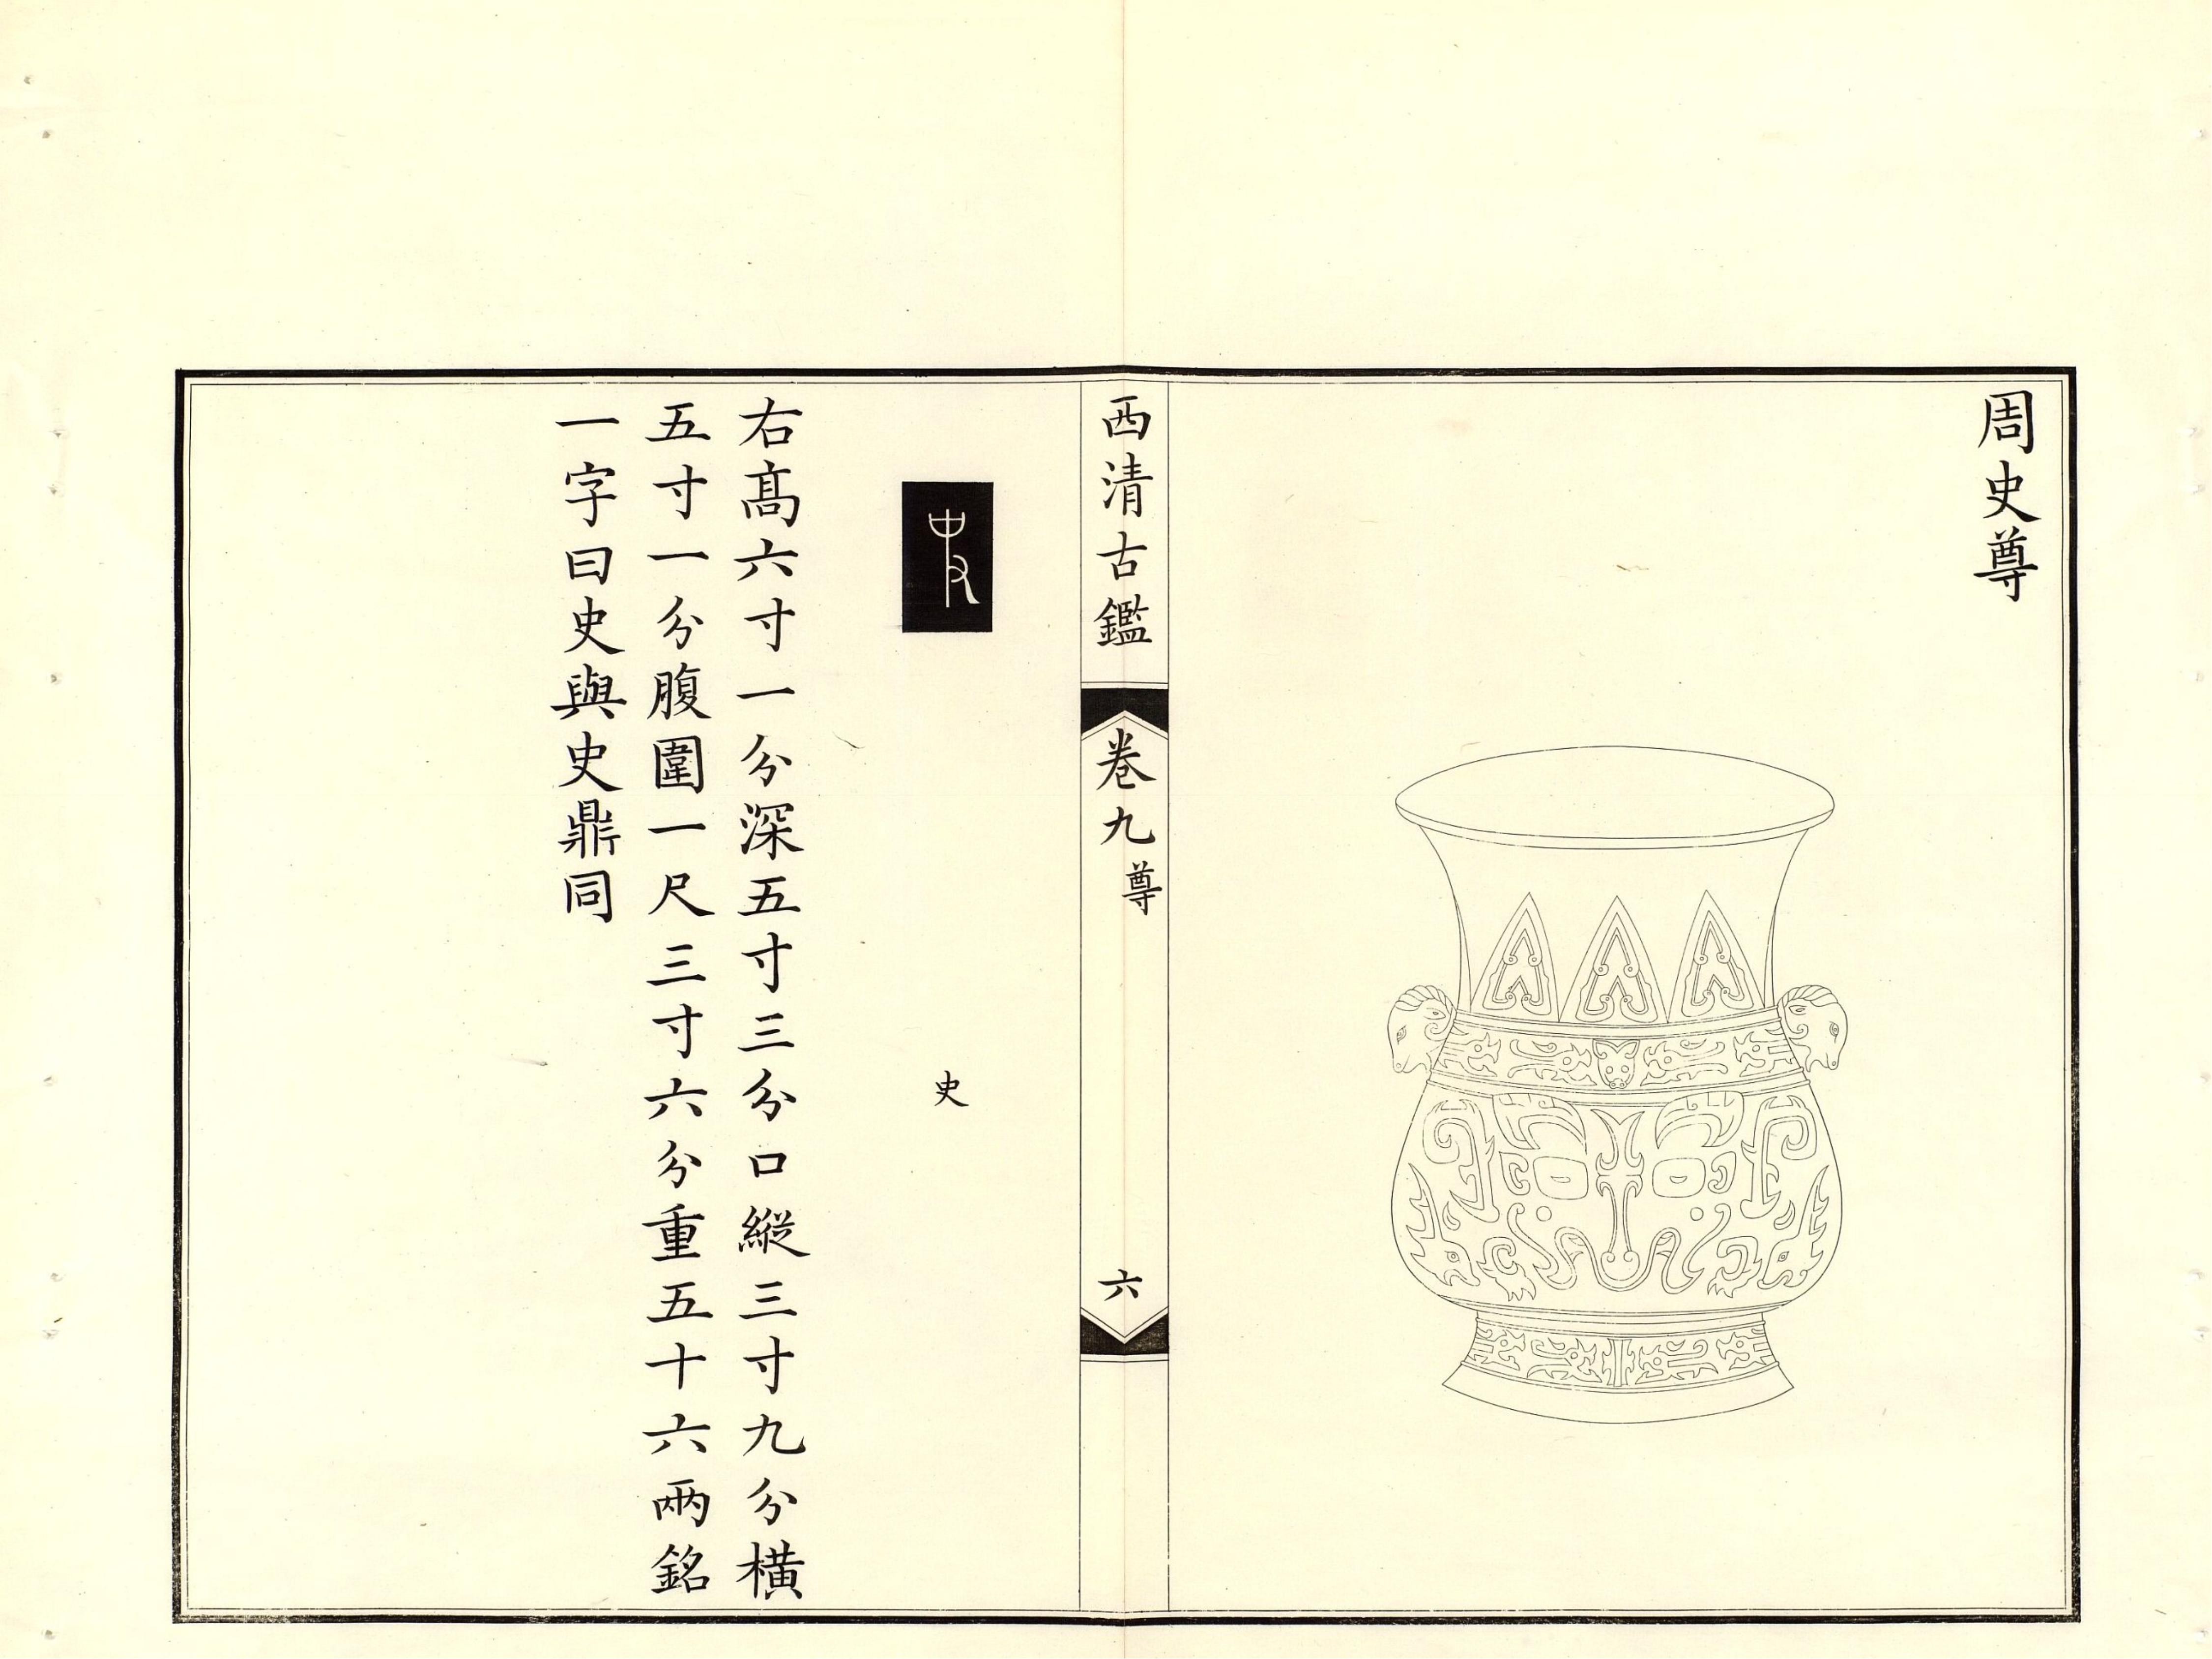 周史尊
西清古鑑
卷九
尊
六
史
右高六寸一分深五寸三分口縱三寸九分橫
五寸一分腹圍一尺三寸六分重五十六兩銘
一字曰史與史鼎同